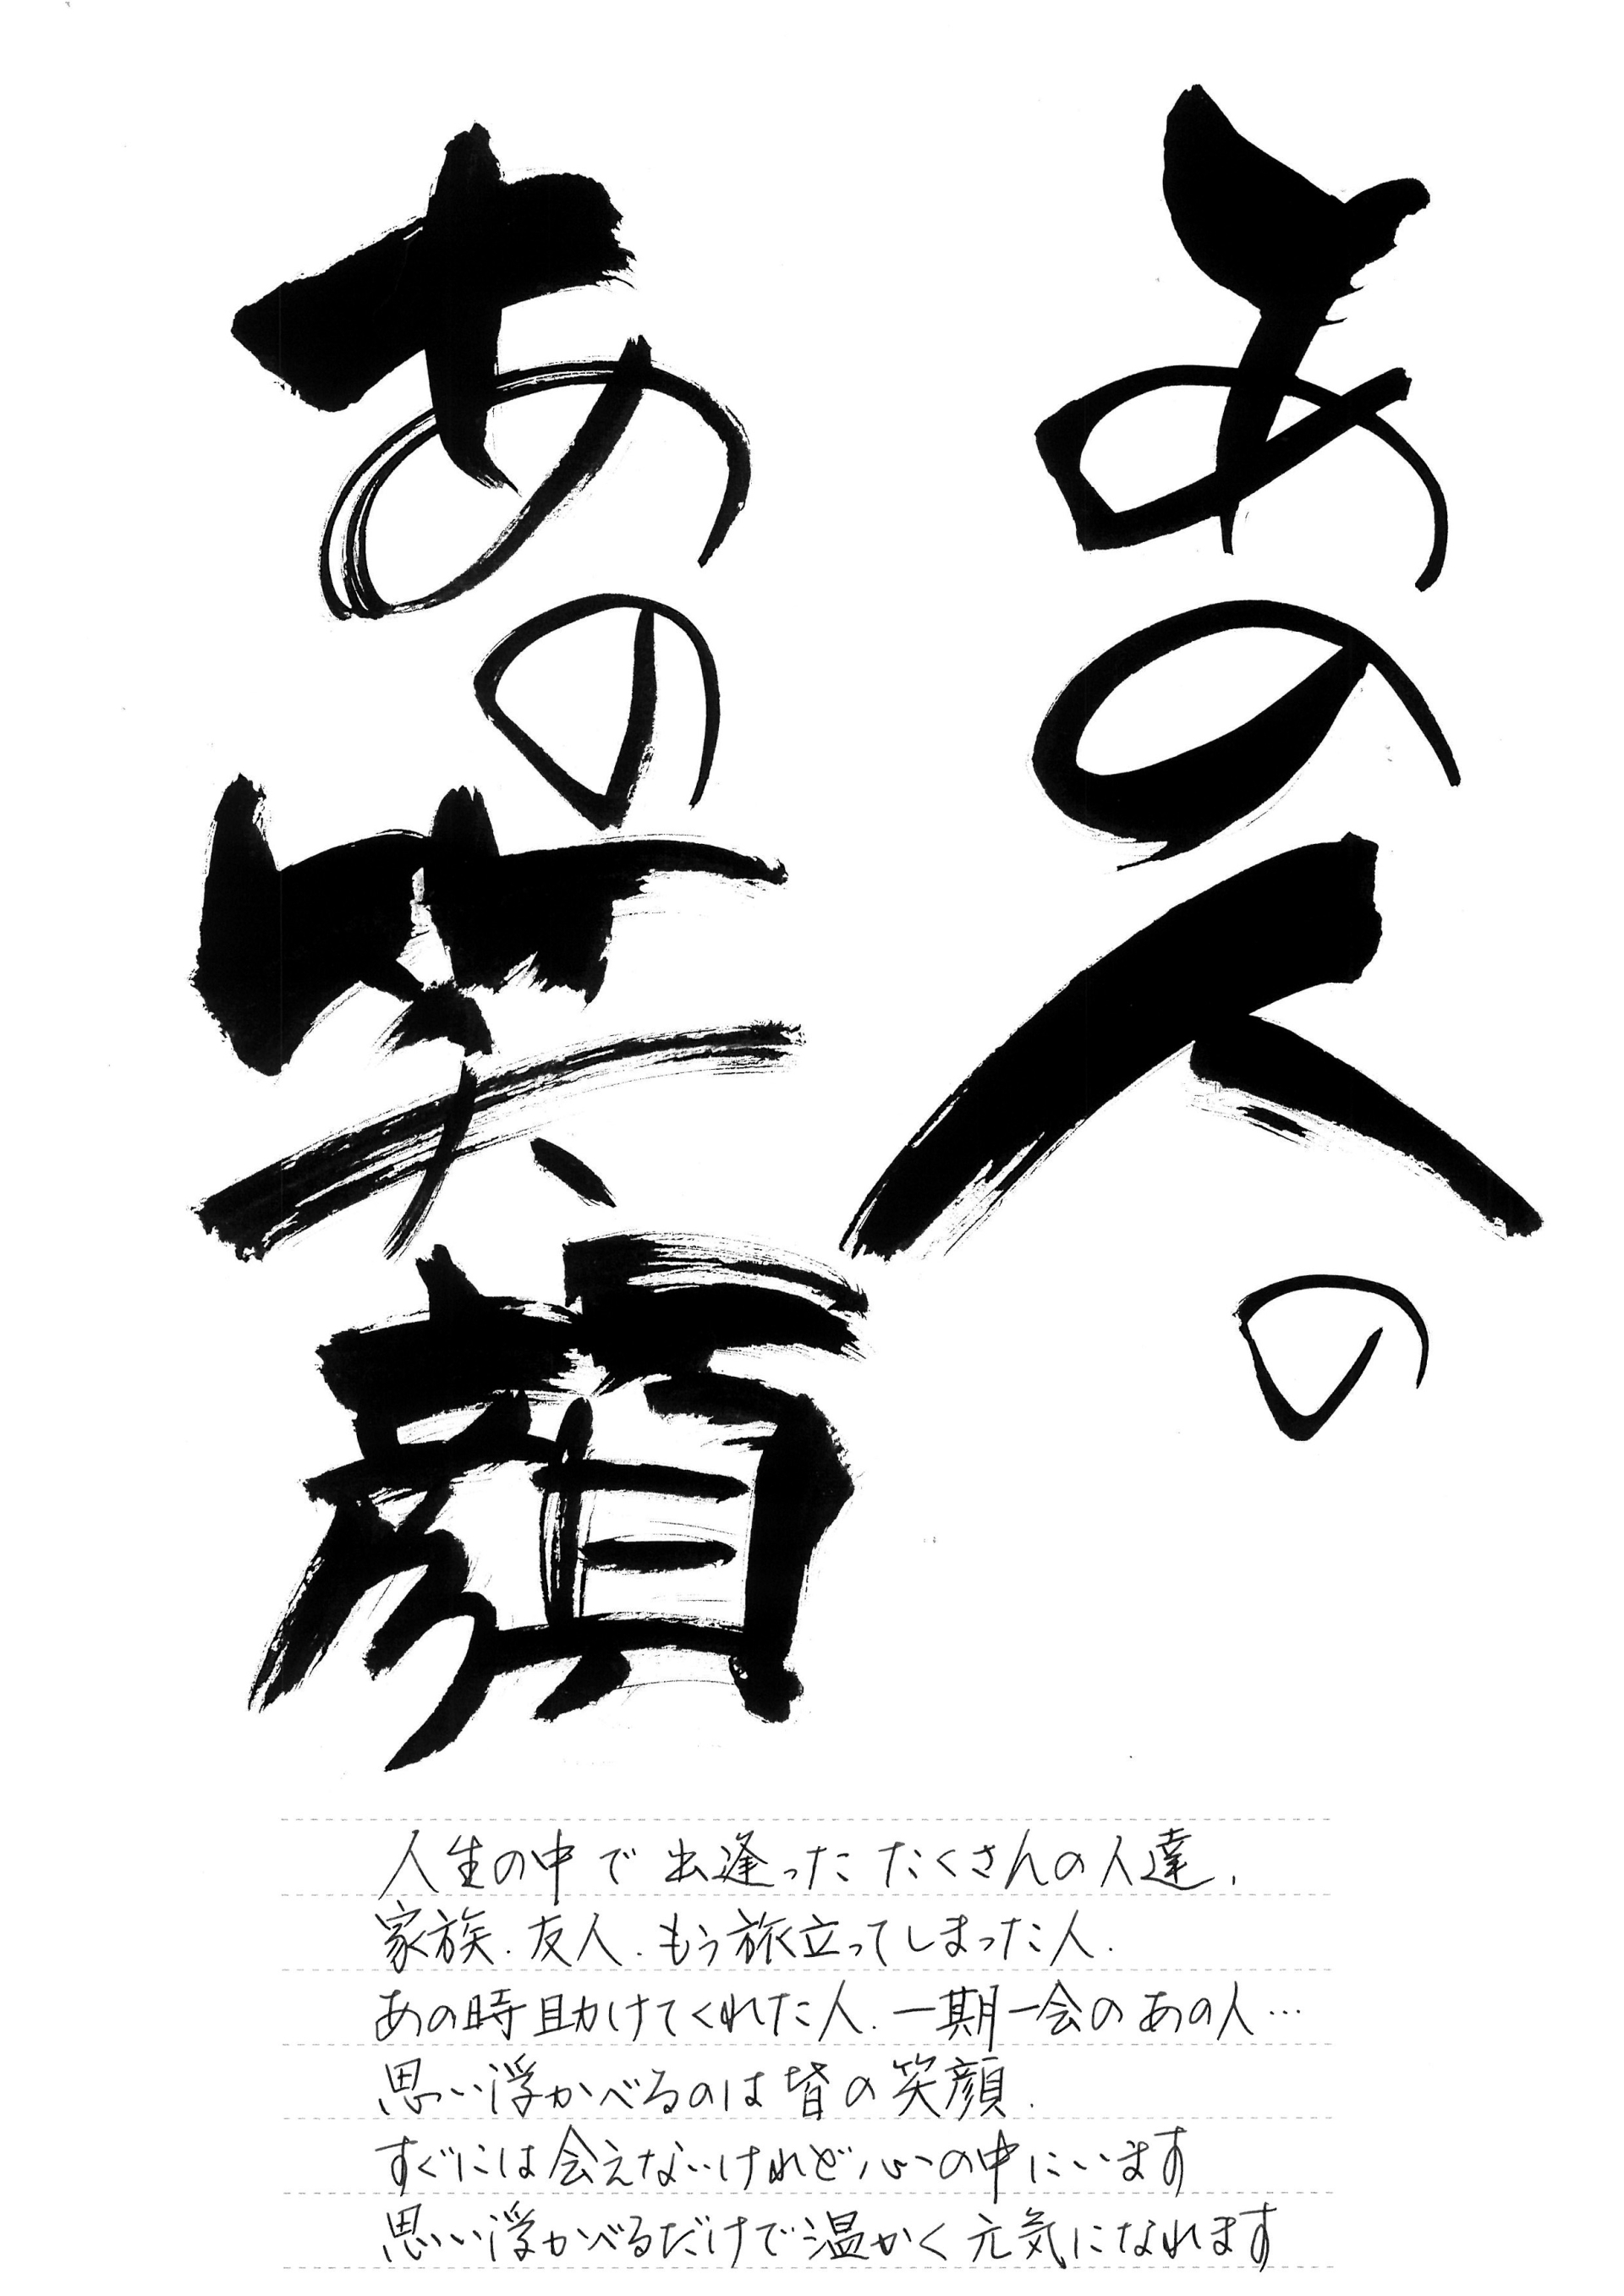 あの人の
あの笑顔
人生の中で出逢ったたくさんの人達.
家族.友人.もう旅立ってしまった人.
あの時助けてくれた人.一期一会のあの人…
思い浮かべるのは皆の笑顔.
すぐには会えないけれど心の中にいます
思い浮かべるだけで温かく元気になれます